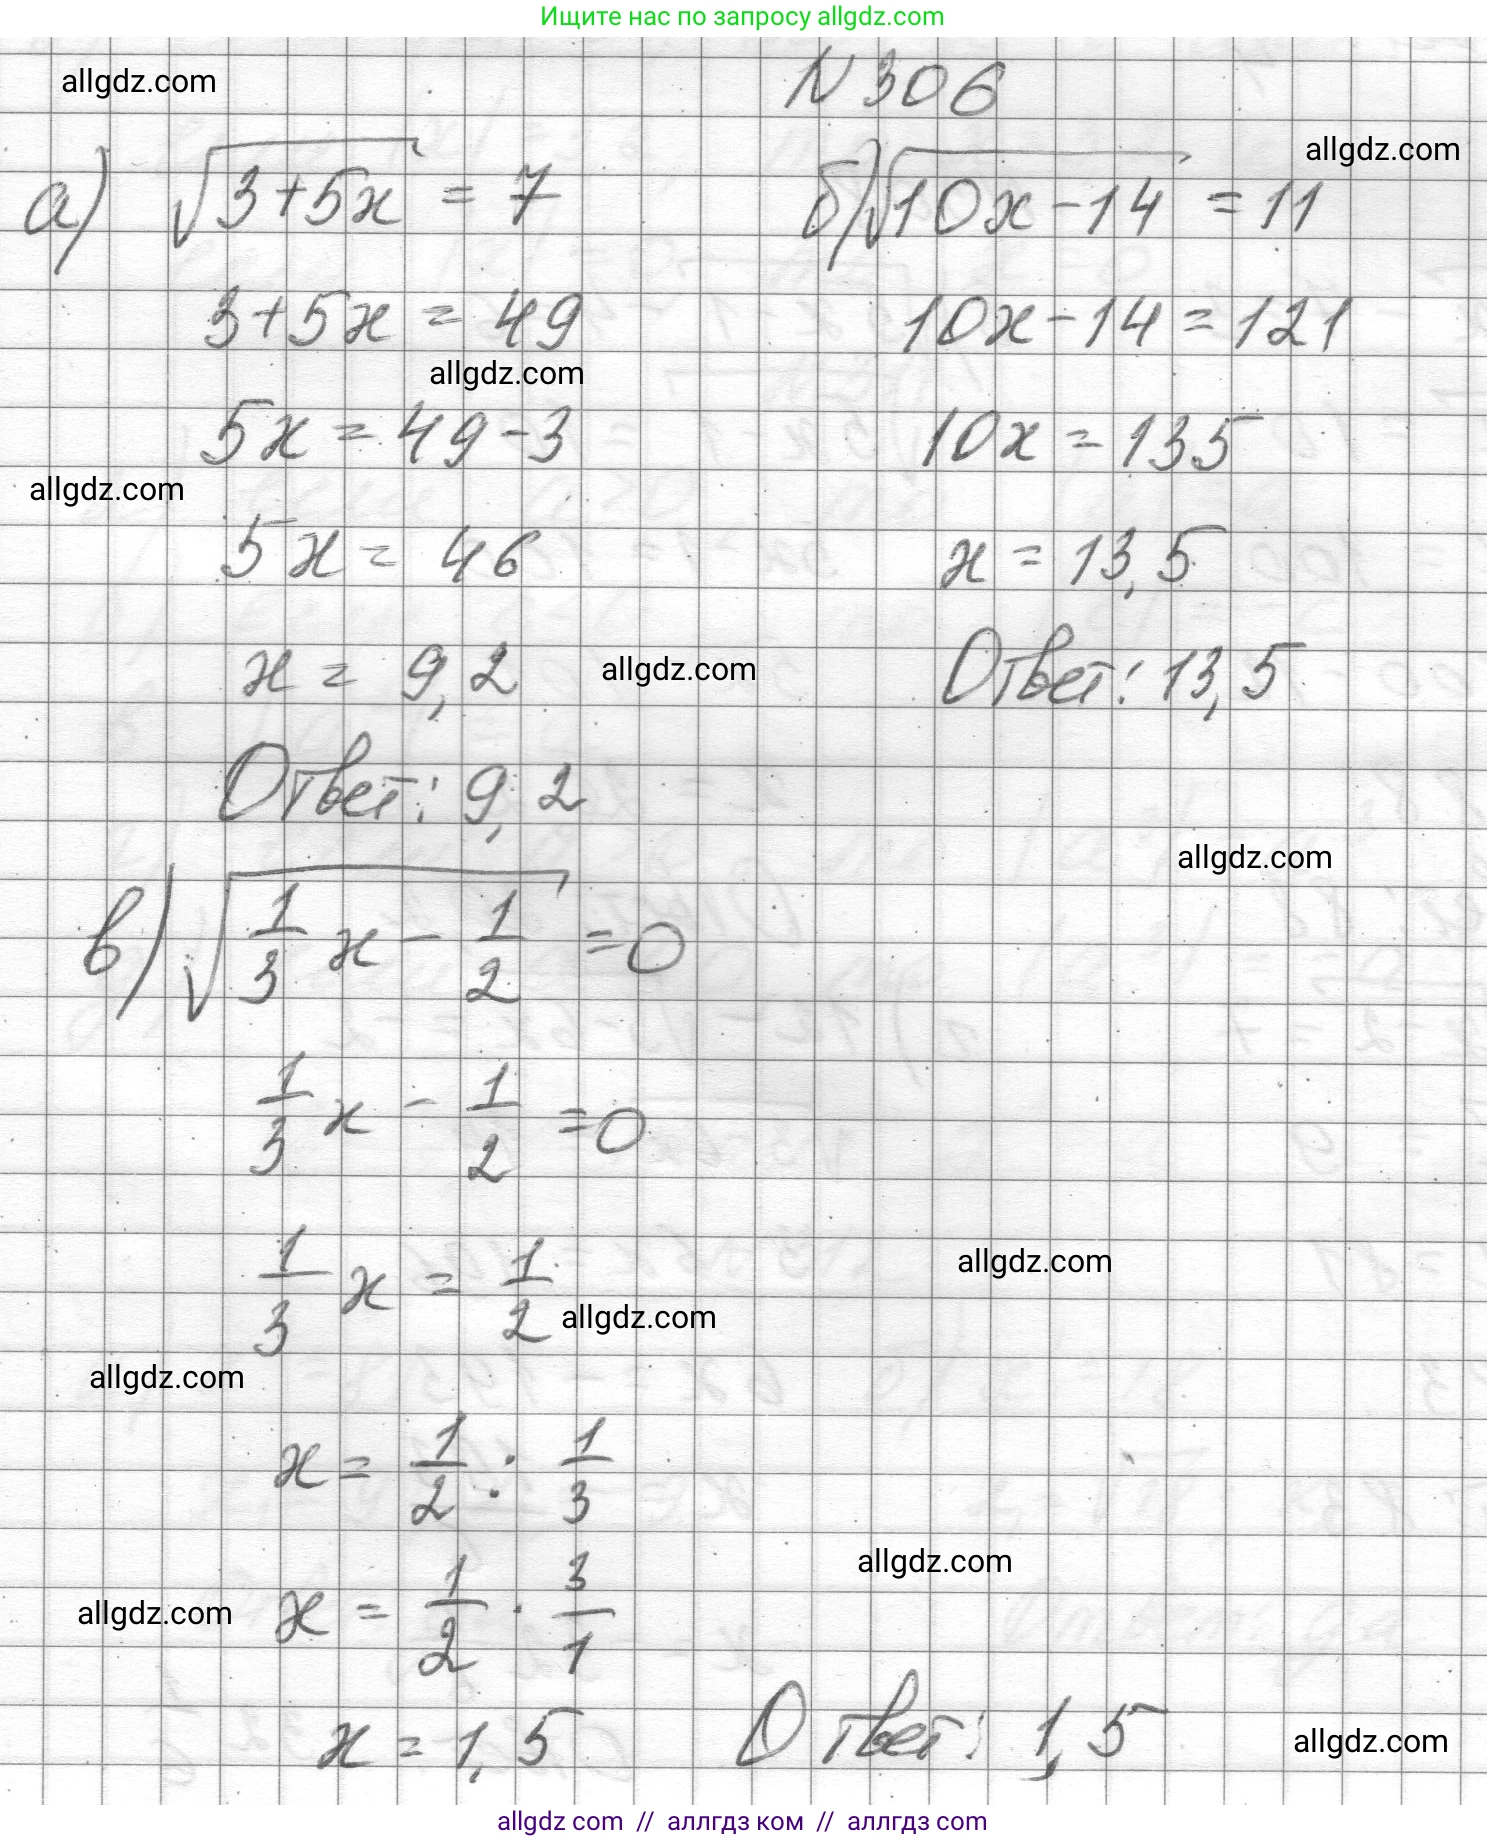 Ищите нас по запросу allgdz.com
allgdz.com
N 306
allgdz.com
а) √(3+5x) = 7
3+5x = 49
allgdz.com
5x = 49-3
allgdz.com
5x = 46
x = 9,2
allgdz.com
Ответ: 9,2
б) √(10x-14) = 11
10x-14 = 121
10x = 135
x = 13,5
Ответ: 13,5
allgdz.com
в) √(1/3 x - 1/2) = 0
1/3 x - 1/2 = 0
1/3 x = 1/2
allgdz.com
allgdz.com
allgdz.com
x = 1/2 : 1/3
allgdz.com
x = 1/2 · 3/1
allgdz.com
x = 1,5 Ответ: 1,5
allgdz.com
allgdz com // аллгдз ком // аллгдз.com